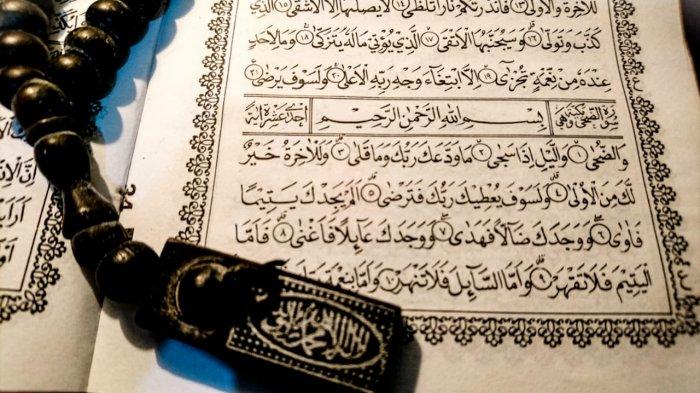 لِلْاٰخِرَةَ وَالْاُوْلٰى ۝١٣ فَاَنْذَرْتُكُمْ نَارًا تَلَظّٰى ۝١٤ لَا يَصْلٰىهَآ اِلَّا الْاَشْقَى ۝١٥ الَّذِيْ
كَذَّبَ وَتَوَلّٰى ۝١٦ وَسَيُجَنَّبُهَا الْاَتْقَى ۝١٧ الَّذِيْ يُؤْتِيْ مَالَهٗ يَتَزَكّٰى ۝١٨ وَمَا لِاَحَدٍ
عِنْدَهٗ مِنْ نِّعْمَةٍ تُجْزٰٓى ۝١٩ اِلَّا ابْتِغَآءَ وَجْهِ رَبِّهِ الْاَعْلٰى ۝٢٠ وَلَسَوْفَ يَرْضٰى ۝٢١
سورة الضحى مكية وهي
بِسْمِ اللّٰهِ الرَّحْمٰنِ الرَّحِيْمِ
احدى عشرة اية
وَالضُّحٰى ۝١ وَالَّيْلِ اِذَا سَجٰى ۝٢ مَا وَدَّعَكَ رَبُّكَ وَمَا قَلٰى ۝٣ وَلَلْاٰخِرَةُ خَيْرٌ
لَّكَ مِنَ الْاُوْلٰى ۝٤ وَلَسَوْفَ يُعْطِيْكَ رَبُّكَ فَتَرْضٰى ۝٥ اَلَمْ يَجِدْكَ يَتِيْمًا
فَاٰوٰى ۝٦ وَوَجَدَكَ ضَآلًّا فَهَدٰى ۝٧ وَوَجَدَكَ عَآئِلًا فَاَغْنٰى ۝٨ فَاَمَّا
الْيَتِيْمَ فَلَا تَقْهَرْ ۝٩ وَاَمَّا السَّآئِلَ فَلَا تَنْهَرْ ۝١٠ وَاَمَّا بِنِعْمَةِ